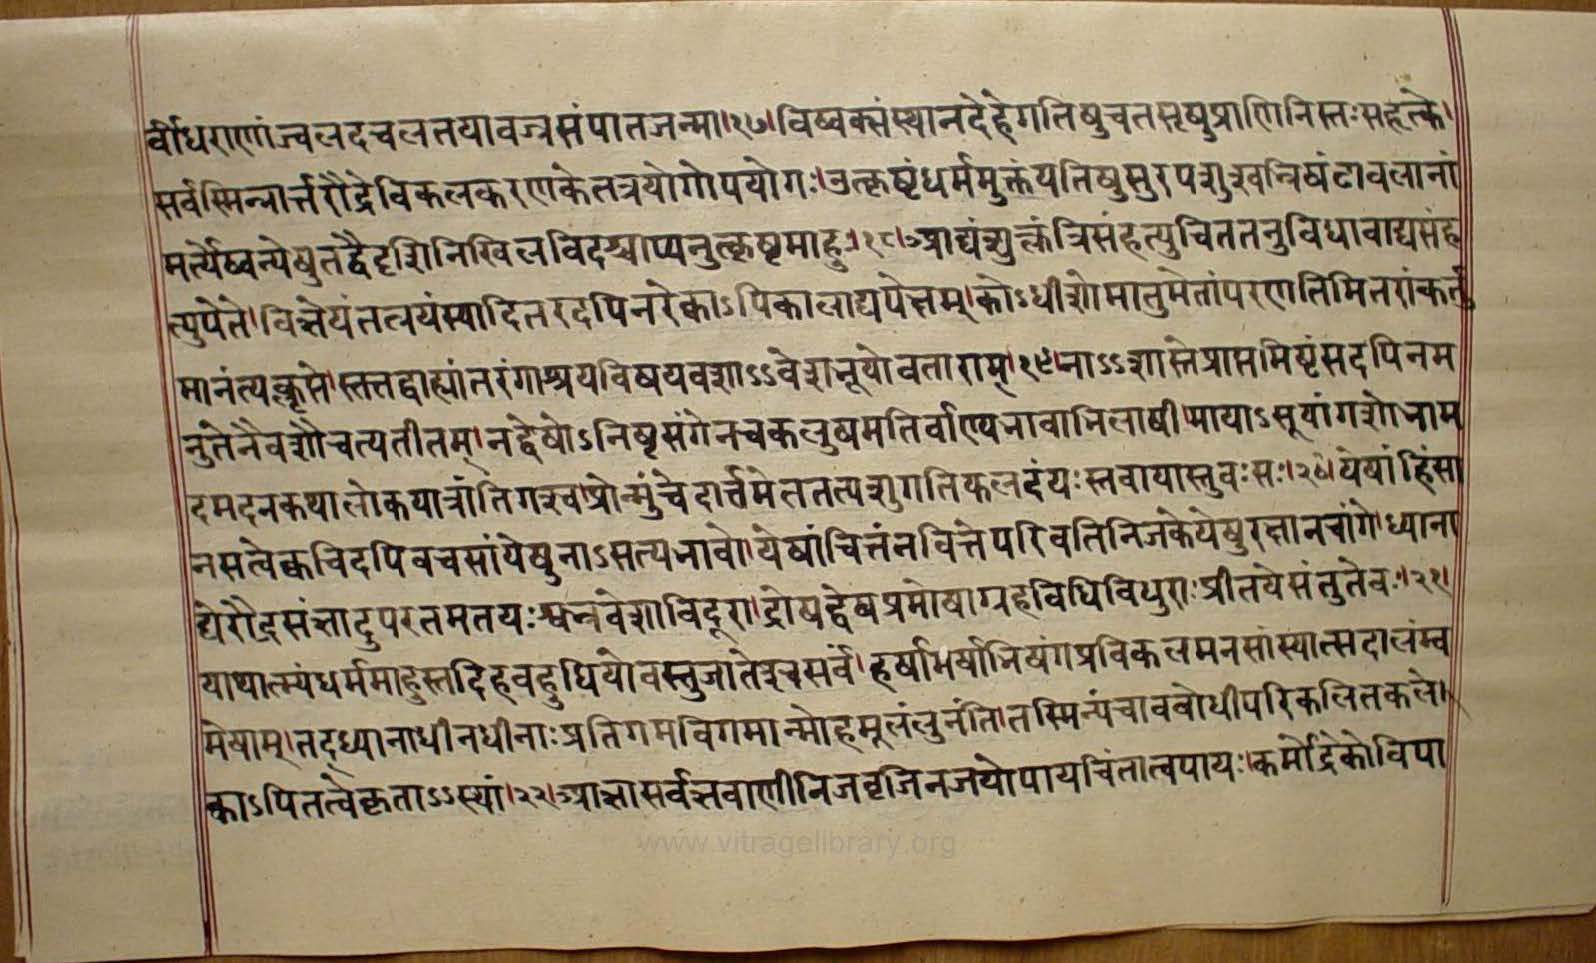 र्वीधराणां ज्वलदचलतयावज्रसंपातजन्मा।१७।विष्वक्संस्थानदेहेगतिषुचतसृषुप्राणिनिस्तःसहृत्के।
सर्वस्मिन्नार्त्तरौद्रेविकलकरणकेतत्रयोगोपयोगः।उत्कृष्टंधर्ममुक्तंयतिषुसुरपशुश्वभ्रिषंटाबलानां
मर्त्येष्वन्येषुतद्वैदृशिनिखिलविदश्चाप्यनुत्कृष्टमाहुः।१८।आद्यंशुल्कंत्रिसंहत्युचिततनुविधावाद्यसंह
त्युपेते।वित्तेयंतत्त्रयंस्यादितरदपिनरेकाऽपिकालाद्यपेक्षम्।कोऽधीशोमातुमेतांपरणतिमितरांकर्त्तु
मानंत्यक्लृप्ते।स्तत्तद्वाह्यांतरंगाश्रयविषयवशाऽऽवेशभूयोवताराम्।१९।नाऽऽशास्तेप्राप्तमिष्टंसदपिनम
नुतेनैवशौचत्यतीतम्।नद्वेषोऽनिष्टसंगेनचकलुषमतिर्वाण्यभावाभिलाषी।मायाऽसूयांगशोभाम
दमदनकथालोकयात्रांतिगश्च।प्रोन्मुंचेदार्त्तमेतत्पशुगतिफलदंयःस्तवायास्तुवःसः।२०।येषांहिंसा
नसत्वेक्वचिदपिवचसांयेषुनाऽसत्यभावो।येषांचित्तंनवित्तेपरिवतिनिजकेयेषुरक्षानचांगे।ध्याना
द्येरौद्रसंज्ञादुपरतमतयःश्वभ्रवेशाविदूरा।द्रोषद्वेषप्रमोषाग्रहविधिविधुराःप्रीतयेसंतुतेवः।२१।
याथात्म्यंधर्ममाहुस्तदिहबहुधियोवस्तुजातेश्चसर्वे।हर्षामर्षाभिषंगप्रविकलमनसांस्यात्सदालंम्ब
मेषाम्।तद्ध्यानाधीनधीनाःप्रतिगमविगमान्मोहमूलंलुनंति।तस्मिन्पंचावबोधीपरिकलितकले।
काऽपितत्वेकृताऽऽस्यां।२२।आज्ञासर्वज्ञवाणीनिजवृजिनजयोपायचिंतात्वपायः।कर्मोद्रेकोविपा
www.vitragelibrary.org